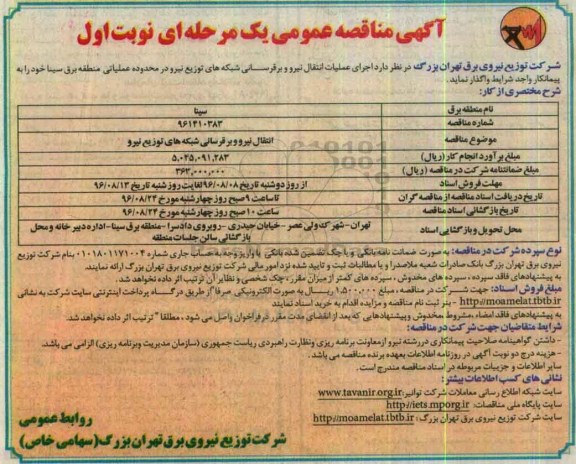 آگهی مناقصه عمومی یک مرحله ای نوبت اول
شرکت توزیع نیروی برق تهران بزرگ، در نظر دارد اجرای عملیات انتقال نیرو و برقرسانی شبکه های توزیع نیرو در محدوده عملیاتی منطقه برق سینا خود را به
پیمانکار واجد شرایط واگذار نماید.
شرح مختصری از کار:
نام منطقه برق سینا
شماره مناقصه ۹۶۱۴۱۰۳۸۳
موضوع مناقصه انتقال نیرو و برقرسانی شبکه های توزیع نیرو
مبلغ برآورد انجام کار (ریال) ۵,۰۲۵,۰۹۱,۲۸۳
مبلغ ضمانتنامه شرکت در مناقصه (ریال) ۳۶۲,۰۰۰,۰۰۰
مهلت فروش اسناد از روز دوشنبه تاریخ ۹۶/۰۸/۰۸ لغایت روز شنبه تاریخ ۹۶/۰۸/۱۳
تاریخ دریافت اسناد مناقصه از مناقصه گران تا ساعت ۹ صبح روز چهارشنبه مورخ ۹۶/۰۸/۲۴
تاریخ بازگشائی اسناد مناقصه ساعت ۱۰ صبح روز چهارشنبه مورخ ۹۶/۰۸/۲۴
محل تحویل و بازگشایی اسناد تهران - شهرک ولی عصر - خیابان حیدری - روبروی دادسرا - منطقه برق سینا - اداره دبیرخانه و محل
بازگشائی سالن جلسات منطقه
نوع سپرده شرکت در مناقصه: به صورت ضمانت نامه بانکی و یا چک تضمین شده بانکی یا واریز وجه به حساب جاری شماره ۰۱۰۱۸۰۱۱۷۱۰۰۴ بنام شرکت توزیع
نیروی برق تهران بزرگ بانک صادرات شعبه ملاصدرا و یا مطالبات ثبت و تایید شده نزد امور مالی شرکت توزیع نیروی برق تهران بزرگ ارائه نمایند.
به پیشنهادهای فاقد سپرده، سپرده های مخدوش، سپرده های کمتر از میزان مقرر، چک شخصی و نظایر آن ترتیب اثر داده نخواهد شد.
مبلغ فروش اسناد: جهت شرکت در مناقصه، مبلغ ۱.۵۰۰.۰۰۰ ریال به صورت الکترونیکی صرفا از طریق درگاه پرداخت اینترنتی سایت شرکت به نشانی
http://moamelat.tbtb.ir - بنز ثبت نام مناقصه و مزایده اقدام به خرید اسناد نمایند
به پیشنهادهای فاقد امضاء، مشروط، مخدوش و پیشنهادهایی که بعد از انقضای مدت مقرر در فراخوان واصل می شود، مطلقا ترتیب اثر داده نخواهد شد.
شرایط متقاضیان جهت شرکت در مناقصه:
- داشتن گواهینامه صلاحیت پیمانکاری در رشته نیرو از معاونت برنامه ریزی ونظارت راهبردی ریاست جمهوری (سازمان مدیریت وبرنامه ریزی) الزامی می باشد.
- هزینه درج دو نوبت آگهی در روزنامه اطلاعات بعهده برنده مناقصه می باشد.
سایر اطلاعات و جزییات مربوطه در اسناد مناقصه مندرج است.
نشانی های کسب اطلاعات بیشتر:
سایت شبکه اطلاع رسانی معاملات شرکت توانیر: www.tavanir.org.ir
سایت پایگاه ملی مناقصات: http://iets.mporg.ir
سایت شرکت توزیع نیروی برق تهران بزرگ: http://moamelat.tbtb.ir
روابط عمومی
شرکت توزیع نیروی برق تهران بزرگ (سهامی خاص)